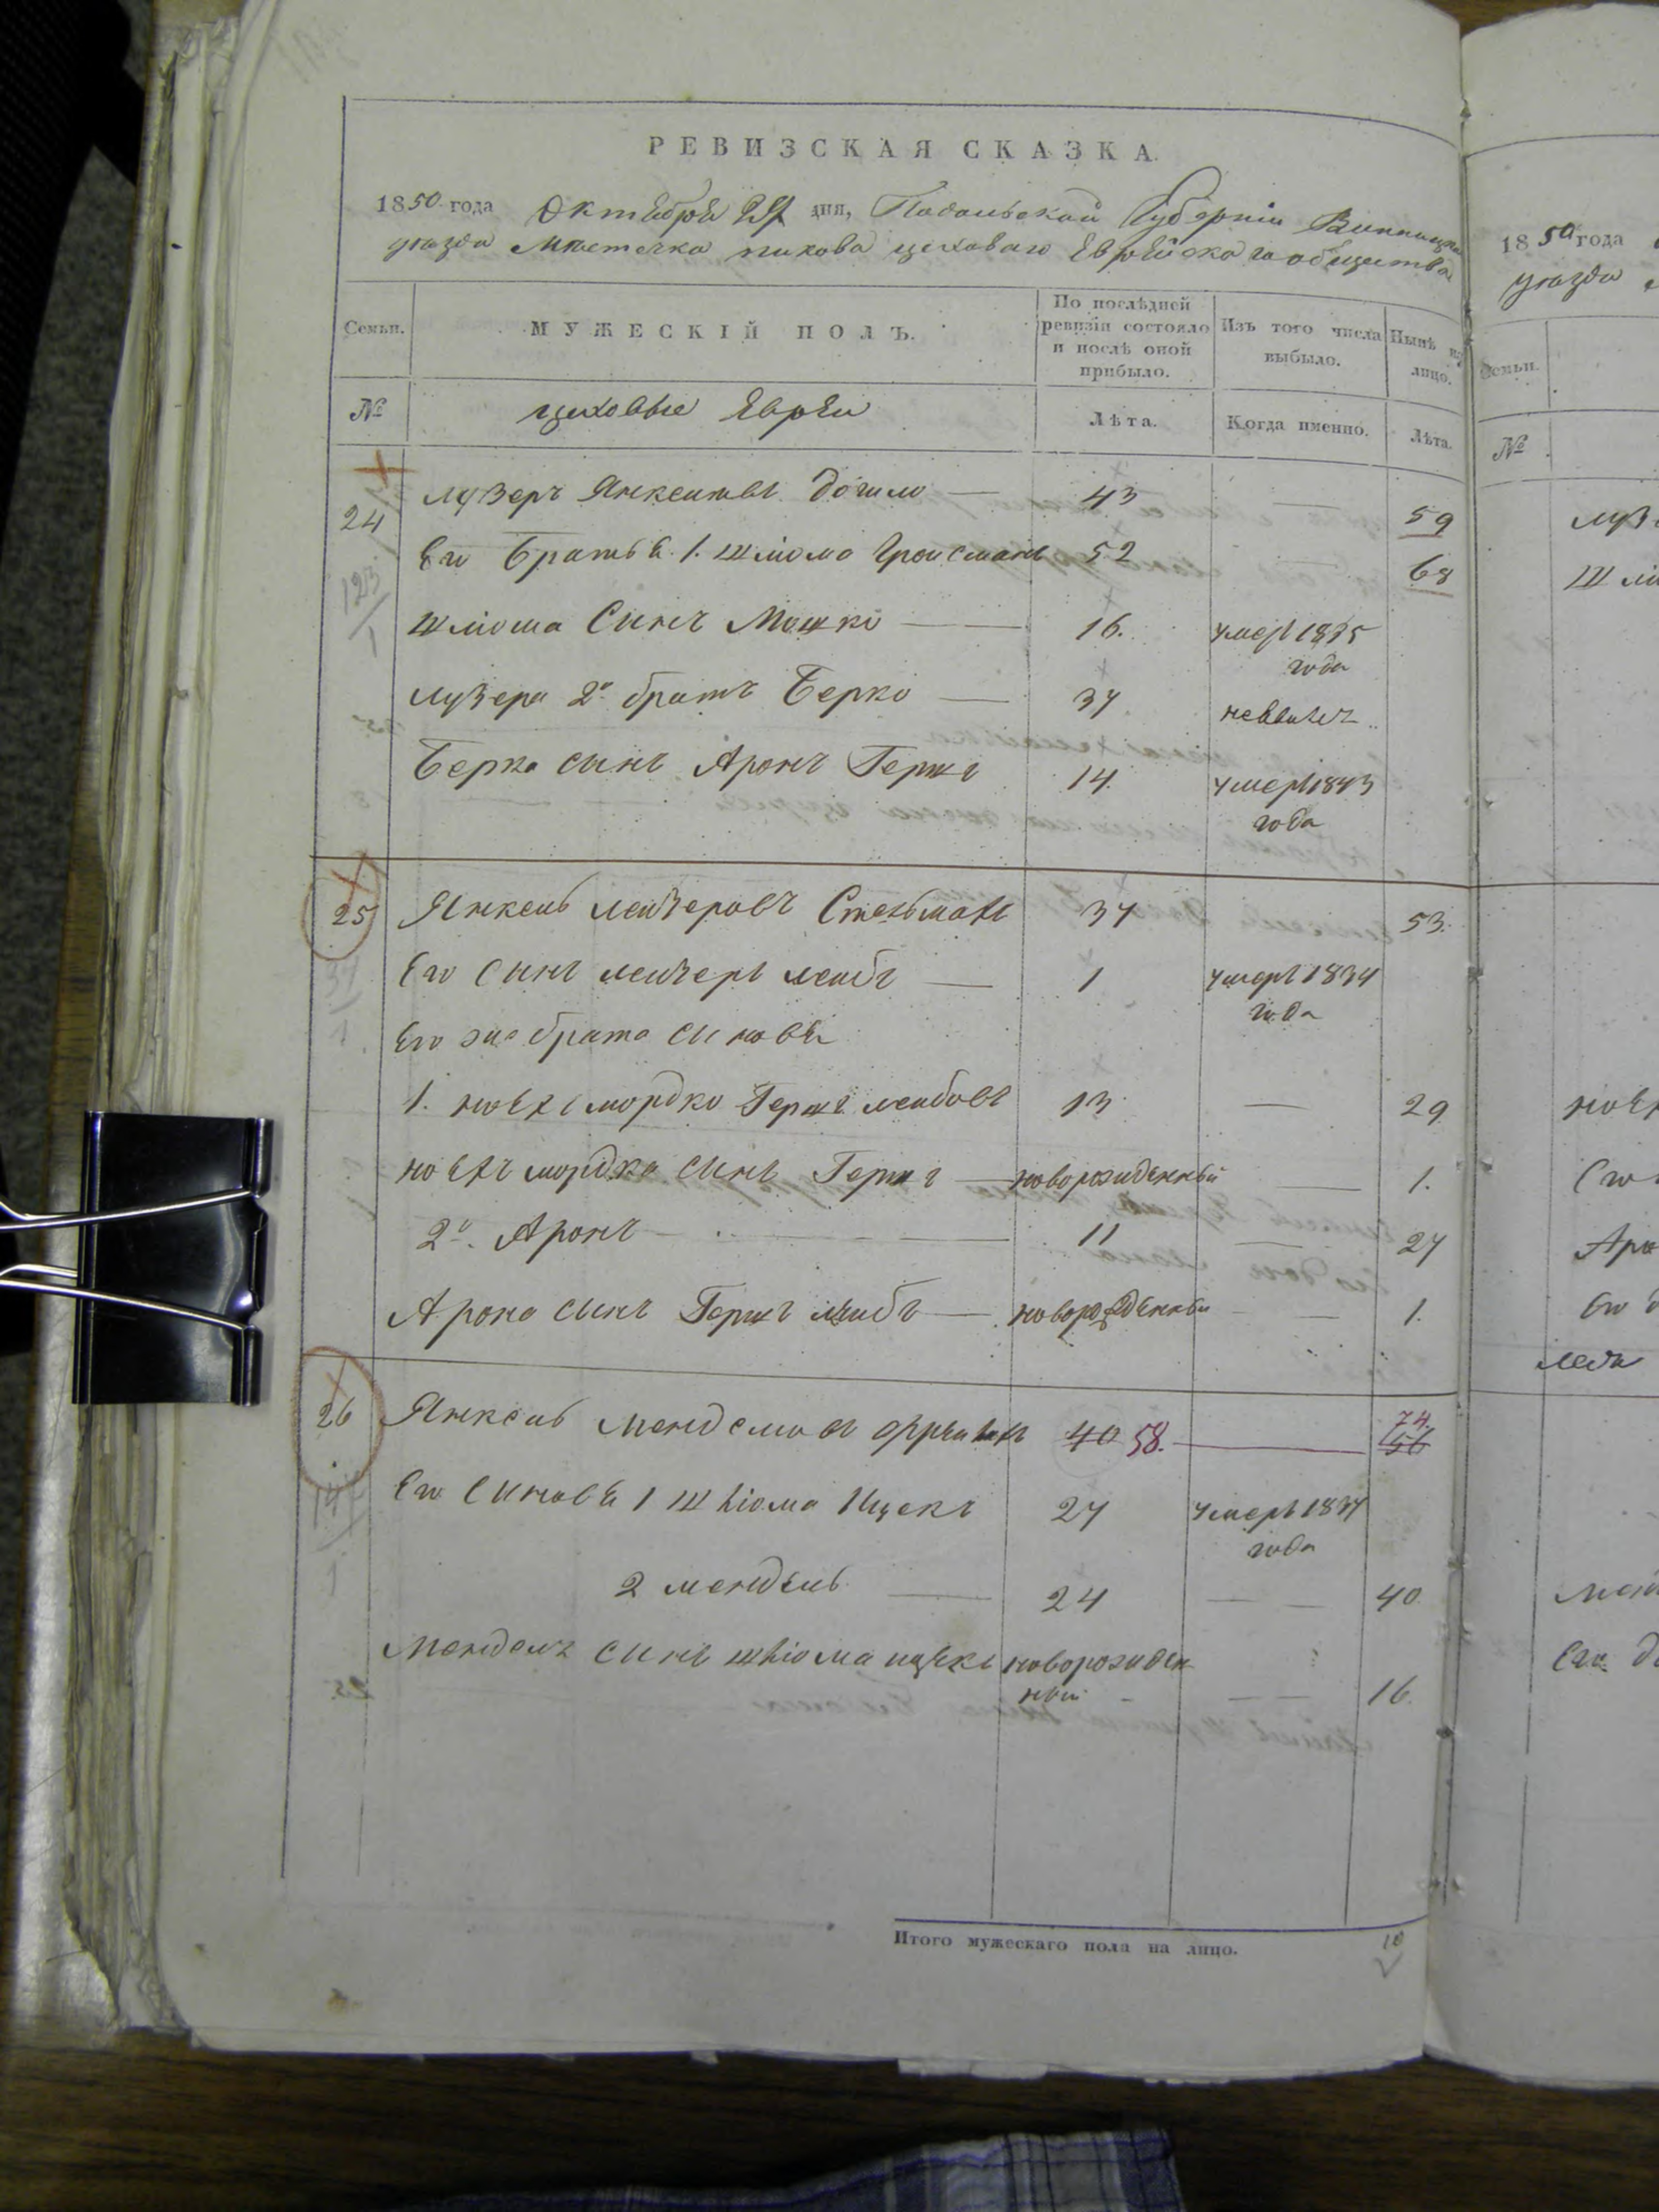 РЕВИЗСКАЯ СКАЗКА.
1850 года Октября дня, Подольской Губерніи Винницка
уѣзда Мѣстечка пикова цеховаго Еврейскаго общества
Семьи.
МУЖЕСКІЙ ПОЛЪ.
По послѣдней ревизіи состояло и послѣ оной прибыло.
Изъ того числа выбыло.
Нынѣ на лицо.
№ цеховые Евреи Лѣта. Когда именно. Лѣта.
24 лузеръ Янкелевъ — 43 — 59
Его Братья 1. шліома Гройсманъ 52 — 68
шліома Сынъ Мошко — 16. умеръ 1835 года
лузера 2й братъ Берко — 37
Берка сынъ Аронъ Гершъ 14. умеръ 1843 года
25 Янкель лейзеровъ Стельмах 37 53.
Его Сынъ лейзеръ лейбъ — 1 умеръ 1834 года
Его же брата сыновья
1. ноехъ мордко Гершъ лейбовъ 13 — 29
ноехъ мордка сынъ Гершъ — новорожденный — 1.
2й. Аронъ — 11 — 27
Арона сынъ Гершъ лейбъ — новорожденный — 1.
26 Янкель Менделювъ 40 58. — 74. 56
Его Сыновья 1 шліома Ицекъ 27 умеръ 1837 года
2 мендель — 24 — — 40
Мендель сынъ шліома ицекъ новорожден
ный — — 16.
123
1
Итого мужескаго пола на лицо. 10
1850 года
уѣзда
Семьи.
№